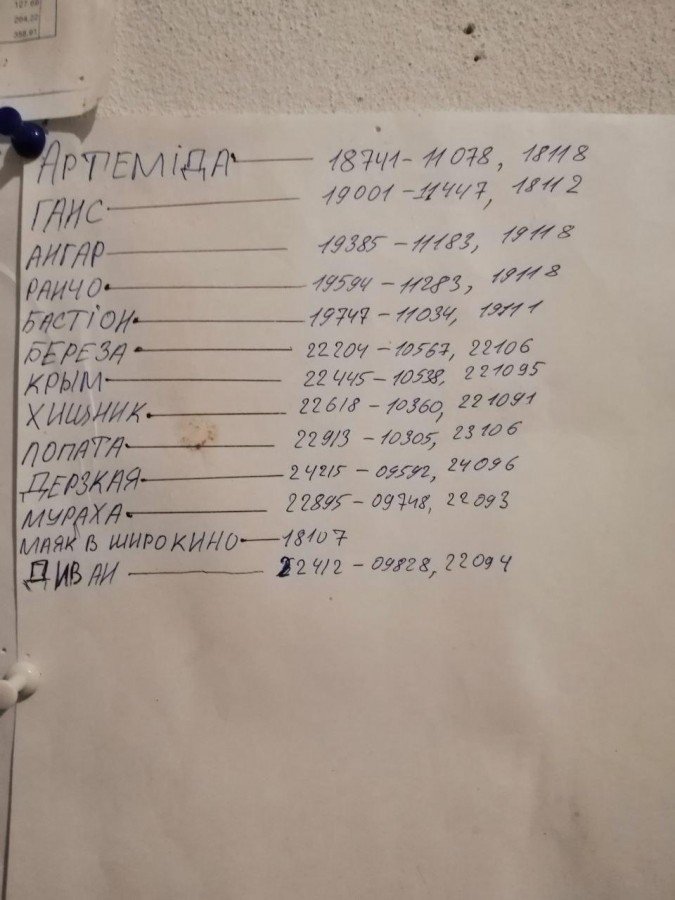 127.60
204.22
358.91
АРТЕМІДА — 18741-11078, 18118
ГАНС — 19001-11447, 18112
АНГАР — 19385-11183, 19118
РАНЧО — 19594-11283, 19118
БАСТІОН — 19747-11034, 19111
БЕРЕЗА — 22204-10567, 22106
КРЫМ — 22445-10538, 221095
ХИЩНИК — 22618-10360, 221091
ЛОПАТА — 22913-10305, 23106
ДЕРЗКАЯ — 24215-09592, 24096
МУРАХА — 22895-09748, 22093
МАЯК В ШИРОКИНО — 18107
ДИВАН — 22412-09828, 22094